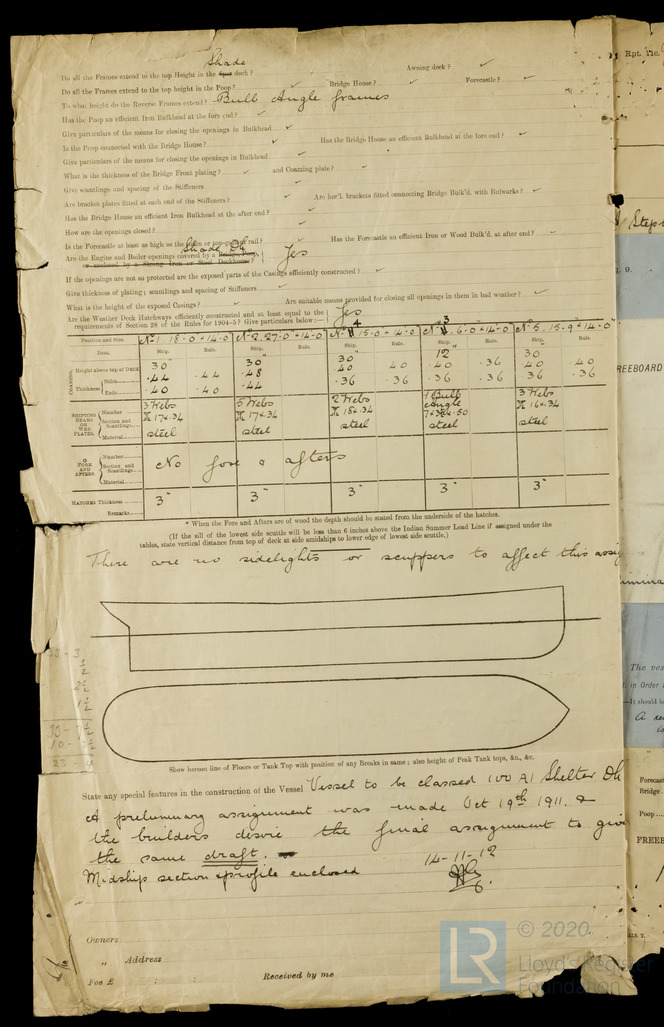 Shade
Do all the Frames extend to the top Height in the Spar deck? Awning deck?
Do all the Frames extend to the top height in the Poop? Bridge House? Forecastle?
To what height do the Reverse Frames extend? Bulb Angle frames
Has the Poop an efficient Iron Bulkhead at the fore end?
Give particulars of the means for closing the openings in Bulkhead
Is the Poop connected with the Bridge House? Has the Bridge House an efficient Bulkhead at the fore end?
Give particulars of the means for closing the openings in Bulkhead
What is the thickness of the Bridge Front plating? and Coaming plate?
Give scantlings and spacing of the Stiffeners
Are bracket plates fitted at each end of the Stiffeners? Are hor'l. brackets fitted connecting Bridge Bulk'd. with Bulwarks?
Has the Bridge House an efficient Iron Bulkhead at the after end?
How are the openings closed?
Is the Forecastle at least as high as the main or top-gallant rail? Has the Forecastle an efficient Iron or Wood Bulk'd. at after end?
Shade Dk
Are the Engine and Boiler openings covered by a Bridge, Poop,
or enclosed by a Strong Iron or Steel Deckhouse? Yes
If the openings are not so protected are the exposed parts of the Casings efficiently constructed?
Give thickness of plating; scantlings and spacing of Stiffeners
What is the height of the exposed Casings? Are suitable means provided for closing all openings in them in bad weather?
Are the Weather Deck Hatchways efficiently constructed and at least equal to the
requirements of Section 28 of the Rules for 1904-5? Give particulars below:— Yes
Position and Size. No 1. 18-0 x 14-0 No 2. 27-0 x 14-0 No 4 15-0 x 14-0 No 3 6-0 x 14-0 No 5. 15-9 x 14-0
Item. Ship. Rule. Ship. Rule. Ship. Rule. Ship. Rule. Ship. Rule.
COAMING. Height above top of DECK 30" 30" 30" 12" 30"
Thickness Sides .44 .44 .48 .40 .40 .40 .36 .40 .40
Ends .40 .40 .44 .36 .36 .36 .36 .36 .36
SHIFTING BEAMS OR WEB PLATES. Number 3 Webs 5 Webs 2 Webs 1 Bulb Angle 3 Webs
Section and Scantlings 17 x .34 17 x .34 18 x .34 16 x .34
Material steel steel steel steel steel
FORE AND AFTERS. Number
Section and Scantlings No fore & afters
Material
HATCHES Thickness 3" 3" 3" 3" 3"
Remarks
* When the Fore and Afters are of wood the depth should be stated from the underside of the hatches.
(If the sill of the lowest side scuttle will be less than 6 inches above the Indian Summer Load Line if assigned under the
tables, state vertical distance from top of deck at side amidships to lower edge of lowest side scuttle.)
There are no sidelights or scuppers to affect this assig
Show hereon line of Floors or Tank Top with position of any Breaks in same; also height of Peak Tank tops, &c., &c.
State any special features in the construction of the Vessel Vessel to be classed 100 A1 Shelter Dk
A preliminary assignment was made Oct 19th 1911. &
the builders desire the final assignment to give
the same draft.
14-11-12
Midship section & profile enclosed
Owners
„ Address
Fee £ : : Received by me
Rpt.
Steps
9.
REEBOARD
The ves
in Order
It should b
A re
Forecast
Bridge
Poop
FREEB
LR
© 2020
Lloyd's Register
Foundation